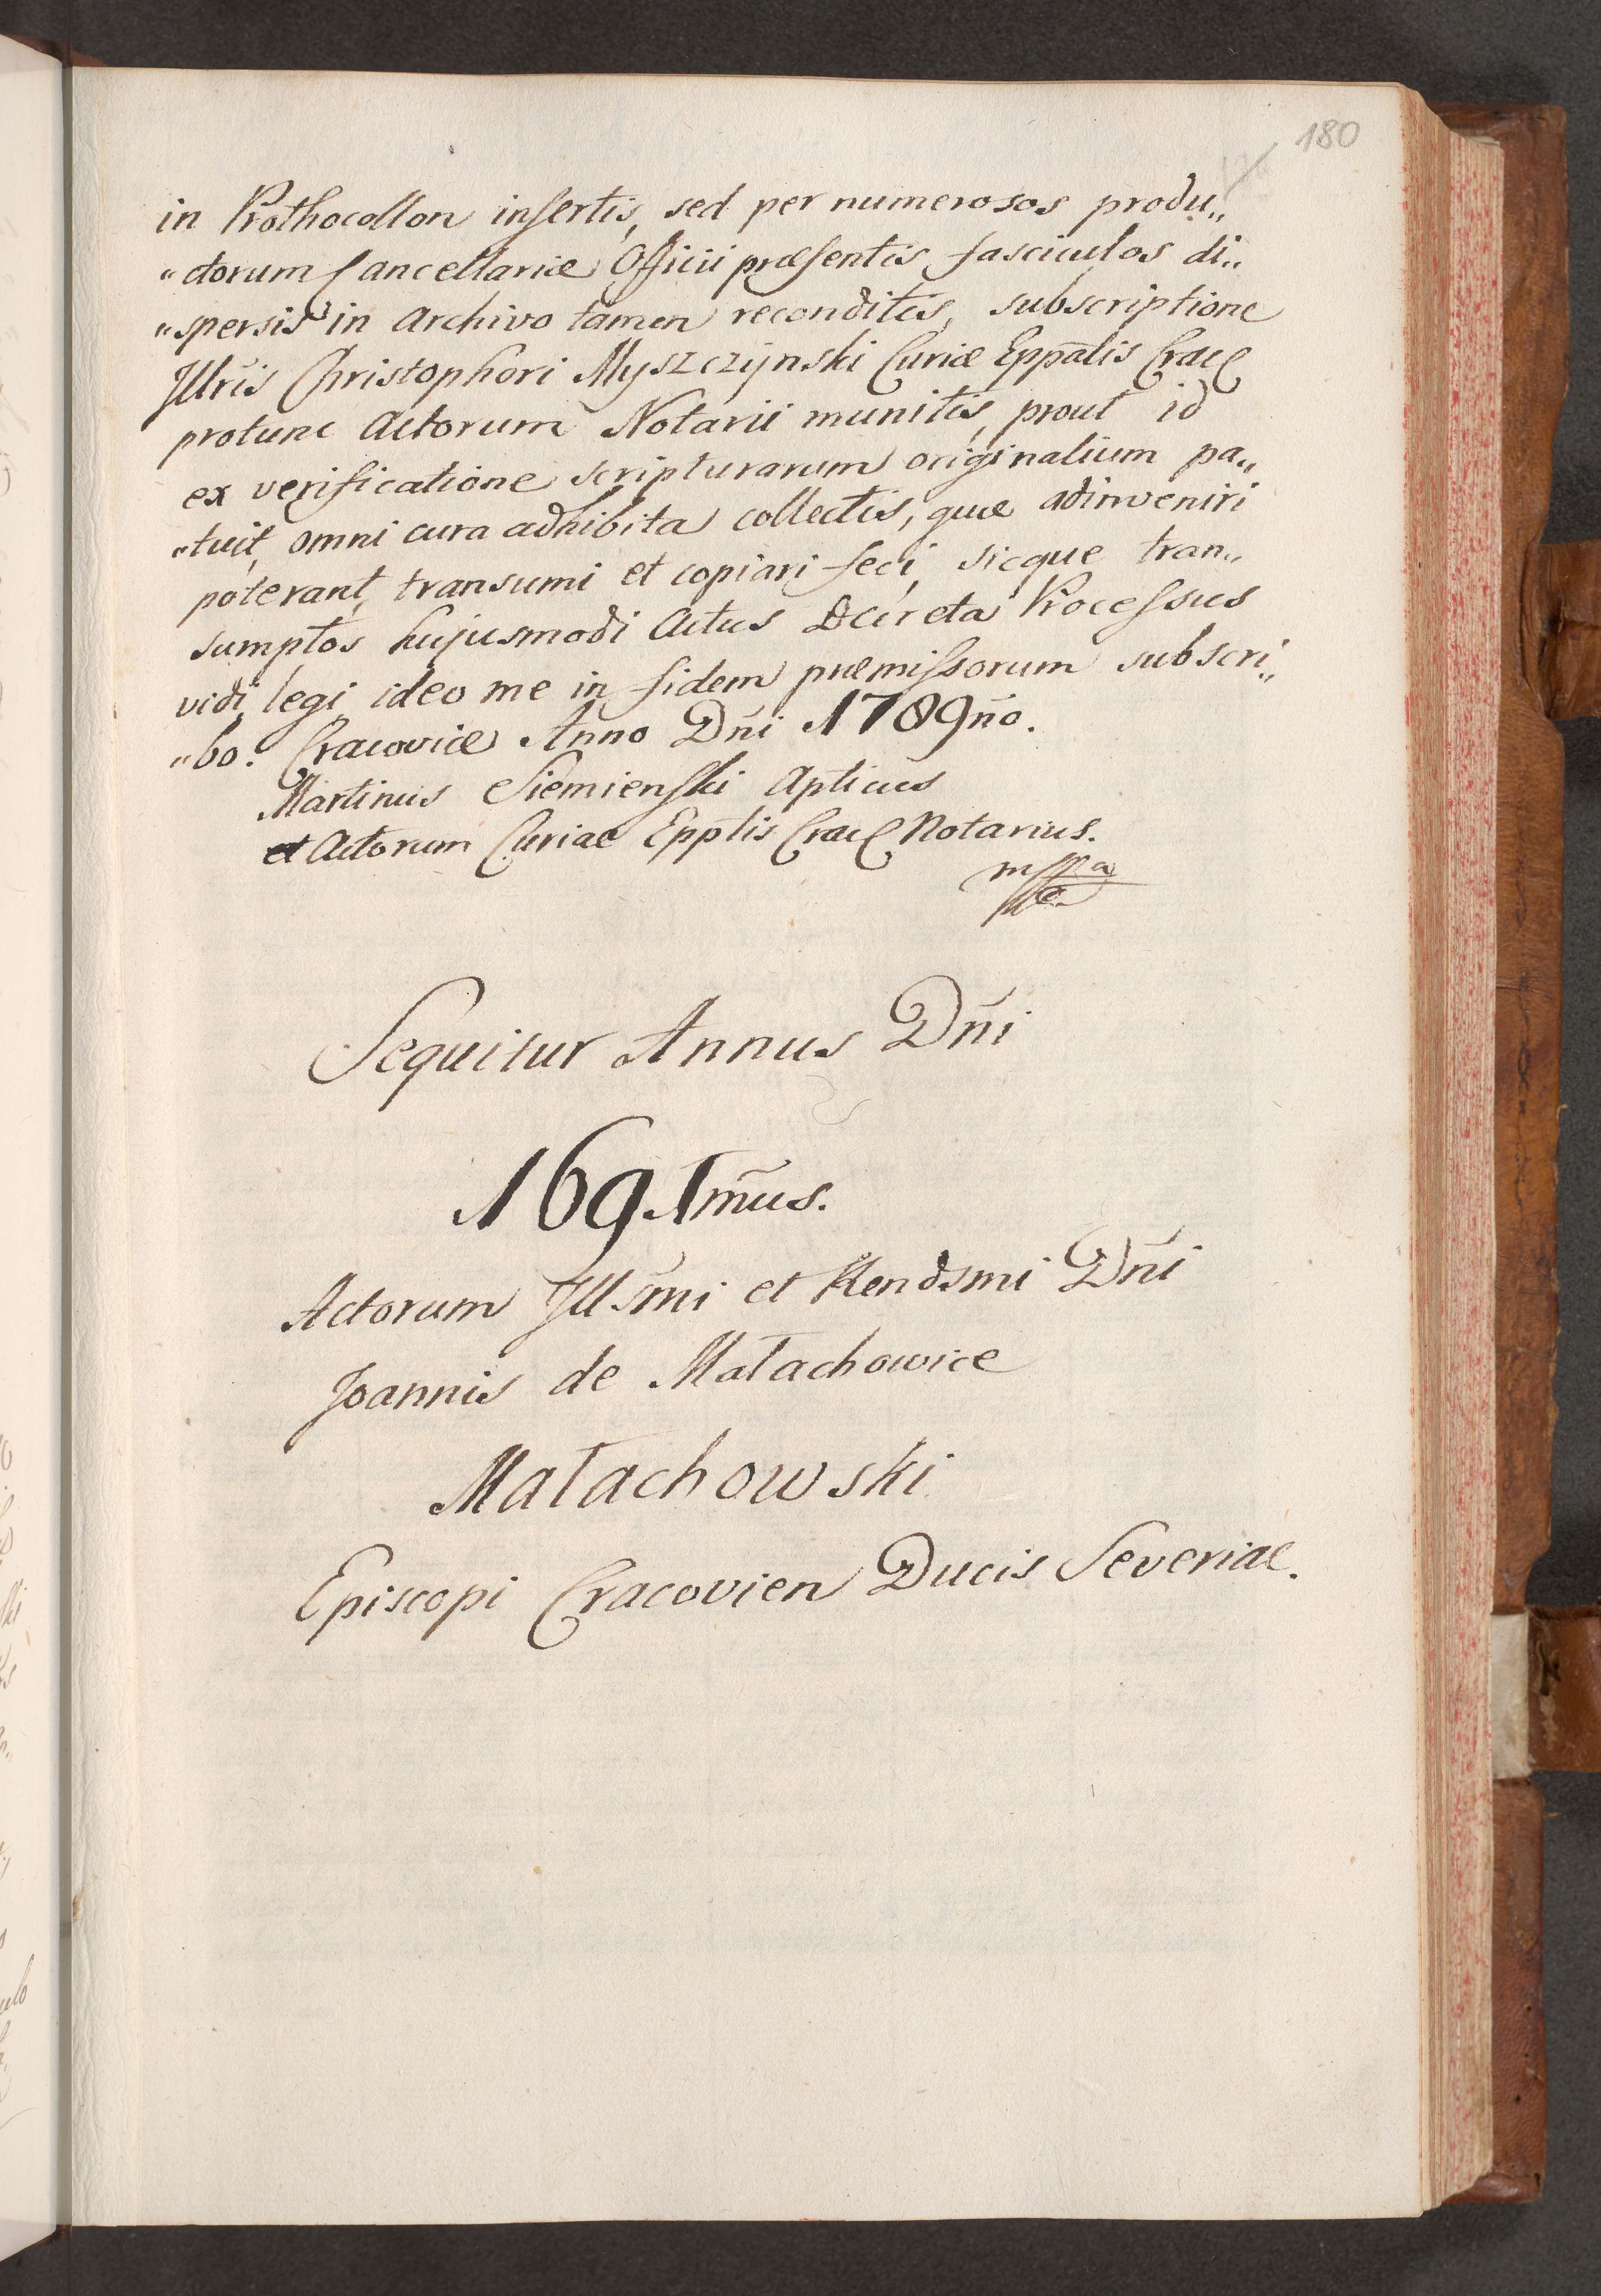 180
in Prothocollon insertis, sed per numerosos produ„
„ctorum Cancellariæ Officii præsentis fasciculos di„
„spersis in Archivo tamen reconditis, subscriptione
Illris Christophori Myszczÿnski Curiæ Eppalis Crac
protunc Actorum Notarii munitis, prout id
ex verificatione scripturarum originalium pa„
„tuit, omni cura adhibita collectis, quæ adinveniri
poterant, transumi et copiari feci, sicque tran„
sumptos hujusmodi Actus Decreta Processus
vidi, legi ideo me in fidem præmissorum subscri„
„bo. Cracoviæ Anno Dn̄i 1789n̄o.
Martinus Siemienski Apticus
et Actorum Curiae Epp̄lis Crac Notarius.
mppa
Sequitur Annus Dn̄i
1691m̄us.
Actorum Ills̄mi et Rendsmi Dn̄i
Joannis de Małachowice
Małachowski
Episcopi Cracovien Ducis Severiae.